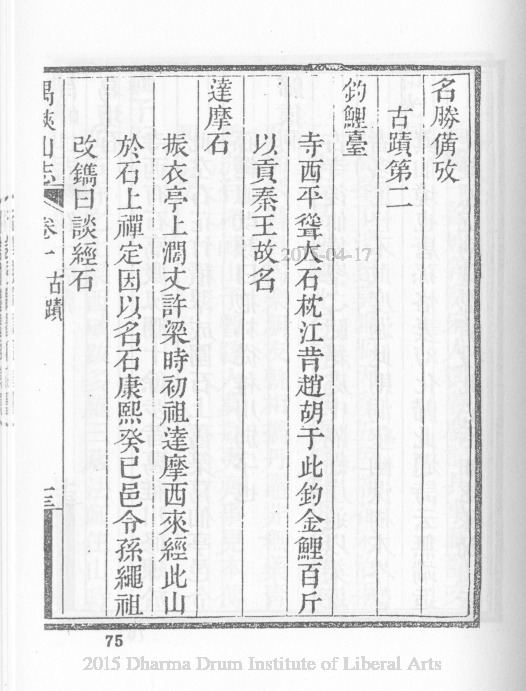 名勝備攷
古蹟第二
釣鯉臺
寺西平聳大石枕江昔趙胡于此釣金鯉百斤
以貢秦王故名
達摩石
振衣亭上濶丈許梁時初祖達摩西來經此山
於石上禪定因以名石康熙癸巳邑令孫繩祖
改鐫曰談經石
禺峽山志
卷一 古蹟
十三
75
2015-04-17
2015 Dharma Drum Institute of Liberal Arts